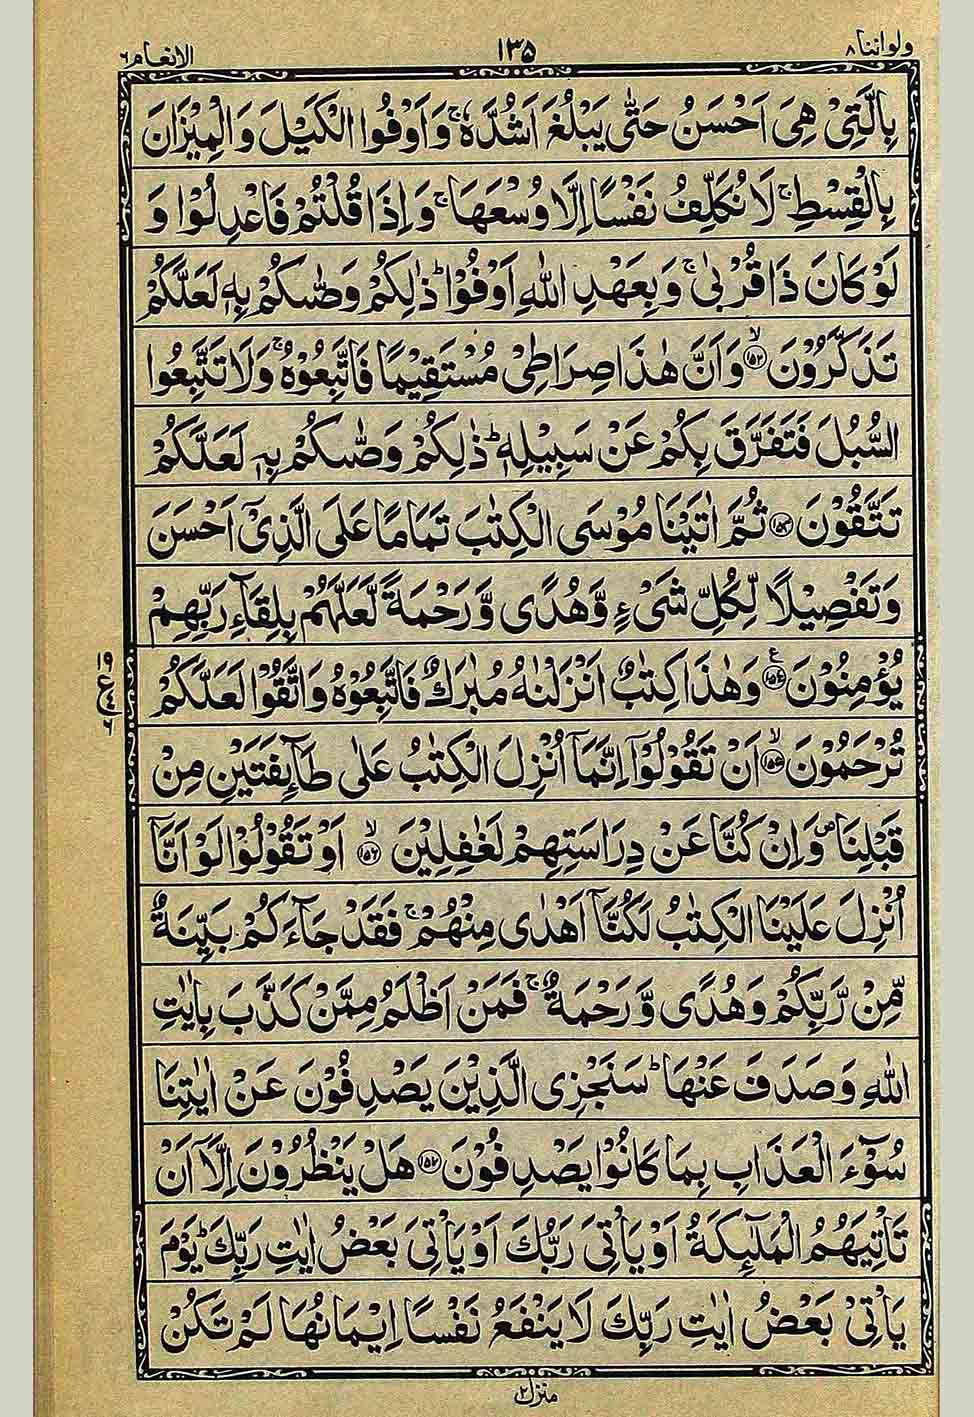 ولواننا ٨ ١٣٥ الانعام ٦
بِالَّتِیْ هِیَ اَحْسَنُ حَتّٰی یَبْلُغَ اَشُدَّهٗ ۚ وَاَوْفُوا الْكَیْلَ وَالْمِیْزَانَ
بِالْقِسْطِ ۚ لَا نُكَلِّفُ نَفْسًا اِلَّا وُسْعَهَا ۚ وَاِذَا قُلْتُمْ فَاعْدِلُوْا وَ
لَوْ كَانَ ذَا قُرْبٰی ۚ وَبِعَهْدِ اللّٰهِ اَوْفُوْا ؕ ذٰلِكُمْ وَصّٰىكُمْ بِهٖ لَعَلَّكُمْ
تَذَكَّرُوْنَ ۙ﴿۱۵۲﴾ وَاَنَّ هٰذَا صِرَاطِیْ مُسْتَقِیْمًا فَاتَّبِعُوْهُ ۚ وَلَا تَتَّبِعُوا
السُّبُلَ فَتَفَرَّقَ بِكُمْ عَنْ سَبِیْلِهٖ ؕ ذٰلِكُمْ وَصّٰىكُمْ بِهٖ لَعَلَّكُمْ
تَتَّقُوْنَ ﴿۱۵۳﴾ ثُمَّ اٰتَیْنَا مُوْسَی الْكِتٰبَ تَمَامًا عَلَی الَّذِیْۤ اَحْسَنَ
وَتَفْصِیْلًا لِّكُلِّ شَیْءٍ وَّهُدًی وَّرَحْمَةً لَّعَلَّهُمْ بِلِقَآءِ رَبِّهِمْ
یُؤْمِنُوْنَ ﴿۱۵۴﴾ ع وَهٰذَا كِتٰبٌ اَنْزَلْنٰهُ مُبٰرَكٌ فَاتَّبِعُوْهُ وَاتَّقُوْا لَعَلَّكُمْ
١٩ ع ٦
تُرْحَمُوْنَ ۙ﴿۱۵۵﴾ اَنْ تَقُوْلُوْۤا اِنَّمَاۤ اُنْزِلَ الْكِتٰبُ عَلٰی طَآىِٕفَتَیْنِ مِنْ
قَبْلِنَا ۪ وَاِنْ كُنَّا عَنْ دِرَاسَتِهِمْ لَغٰفِلِیْنَ ۙ﴿۱۵۶﴾ اَوْ تَقُوْلُوْا لَوْ اَنَّاۤ
اُنْزِلَ عَلَیْنَا الْكِتٰبُ لَكُنَّاۤ اَهْدٰی مِنْهُمْ ۚ فَقَدْ جَآءَكُمْ بَیِّنَةٌ
مِّنْ رَّبِّكُمْ وَهُدًی وَّرَحْمَةٌ ۚ فَمَنْ اَظْلَمُ مِمَّنْ كَذَّبَ بِاٰیٰتِ
اللّٰهِ وَصَدَفَ عَنْهَا ؕ سَنَجْزِی الَّذِیْنَ یَصْدِفُوْنَ عَنْ اٰیٰتِنَا
سُوْٓءَ الْعَذَابِ بِمَا كَانُوْا یَصْدِفُوْنَ ﴿۱۵۷﴾ هَلْ یَنْظُرُوْنَ اِلَّاۤ اَنْ
تَاْتِیَهُمُ الْمَلٰٓىِٕكَةُ اَوْ یَاْتِیَ رَبُّكَ اَوْ یَاْتِیَ بَعْضُ اٰیٰتِ رَبِّكَ ؕ یَوْمَ
یَاْتِیْ بَعْضُ اٰیٰتِ رَبِّكَ لَا یَنْفَعُ نَفْسًا اِیْمَانُهَا لَمْ تَكُنْ
منزل ٢